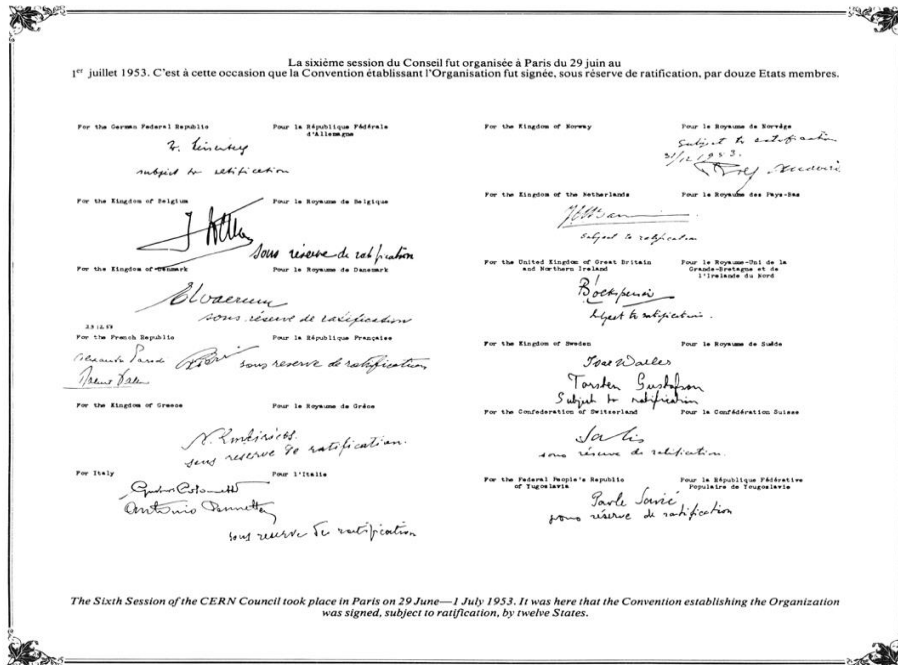 La sixième session du Conseil fut organisée à Paris du 29 juin au
1er juillet 1953. C'est à cette occasion que la Convention établissant l'Organisation fut signée, sous réserve de ratification, par douze Etats membres.
For the German Federal Republic Pour la République Fédérale d'Allemagne
subject to ratification
For the Kingdom of Belgium Pour le Royaume de Belgique
sous réserve de ratification
For the Kingdom of Denmark Pour le Royaume de Danemark
sous réserve de ratification
For the French Republic Pour la République Française
sous reserve de ratification
For the Kingdom of Greece Pour le Royaume de Grèce
sous reserve de ratification.
For Italy Pour l'Italie
Antonio
sous reserve de ratification
For the Kingdom of Norway Pour le Royaume de Norvège
Subject to ratification
31/12 1953.
For the Kingdom of the Netherlands Pour le Royaume des Pays-Bas
subject to ratification
For the United Kingdom of Great Britain Pour le Royaume-Uni de la
and Northern Ireland Grande-Bretagne et de
l'Irelande du Nord
subject to ratification.
For the Kingdom of Sweden Pour le Royaume de Suède
Ivar Waller
Torsten Gustafson
Subject to ratification
For the Confederation of Switzerland Pour la Confédération Suisse
sous réserve de ratification.
For the Federal People's Republic Pour la République Fédérative
of Yugoslavia Populaire de Yougoslavie
Pavle Savić
sous réserve de ratification
The Sixth Session of the CERN Council took place in Paris on 29 June—1 July 1953. It was here that the Convention establishing the Organization
was signed, subject to ratification, by twelve States.